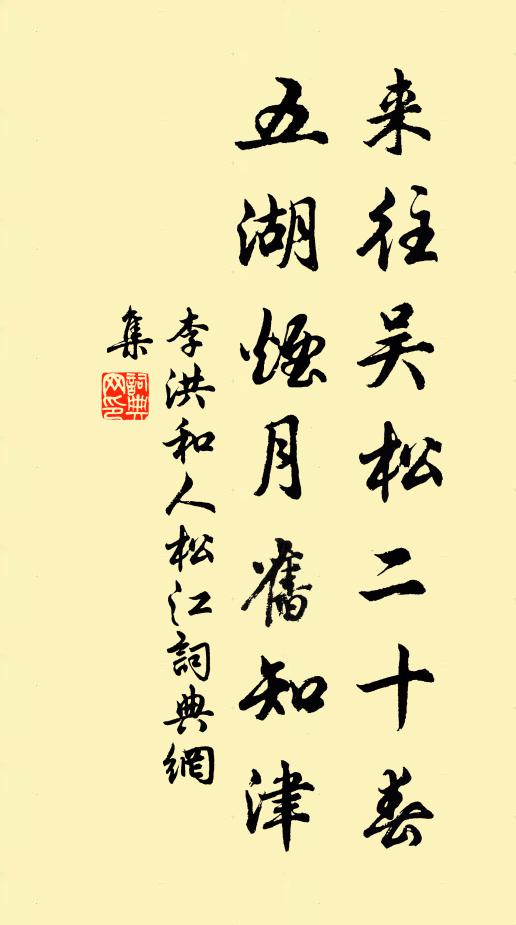 来往吴松二十春
五湖煙月舊知津
李洪和人松江詞典網
集
詞典
网印